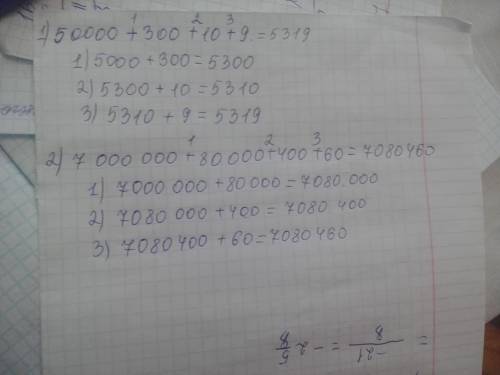 1) 50000 + 300 + 10 + 9 = 5319
1 2 3
1) 5000 + 300 = 5300
2) 5300 + 10 = 5310
3) 5310 + 9 = 5319
1 2 3
2) 7 000 000 + 80 000 + 400 + 60 = 7080460
1) 7000 000 + 80000 = 7080.000
2) 7080 000 + 400 = 7080 400
3) 7080400 + 60 = 7080460
= -21/8 = -2 5/8